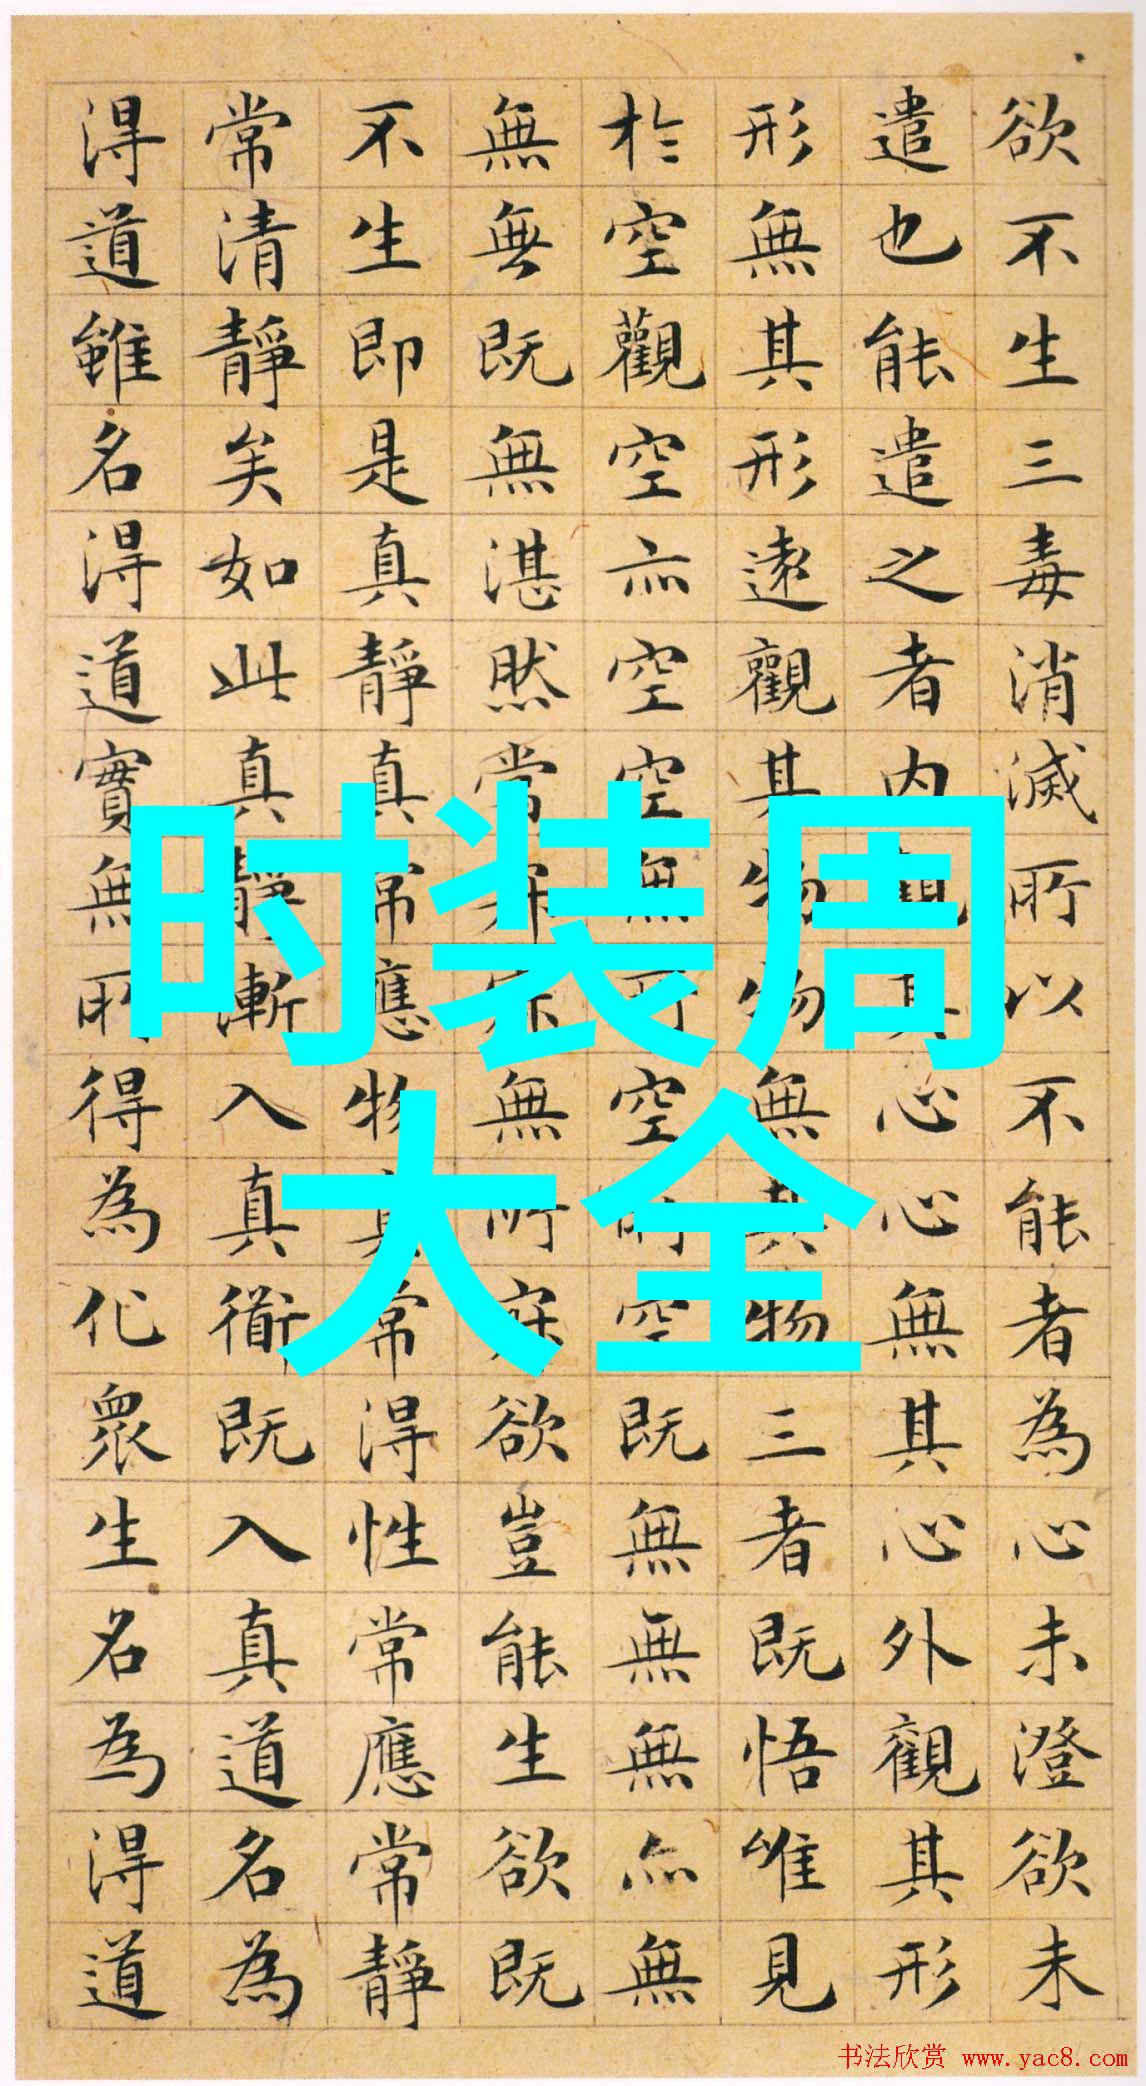 欲不生三毒消滅所以不能者為心未澄欲未
遣也能遣之者內觀其心心無其心外觀其形
形無其形遠觀其物物無其物三者既悟唯見
於空觀空亦空空無所空所空既無無無亦無
無無既無湛然常寂寂無所寂欲豈能生欲既
不生即是真靜真常應物真常得性常應常靜
常清靜矣如此真靜漸入真衜既入真道名為
得道雖名得道實無所得為化眾生名為得道
时装周
大全
书法欣赏 www.yac8.com